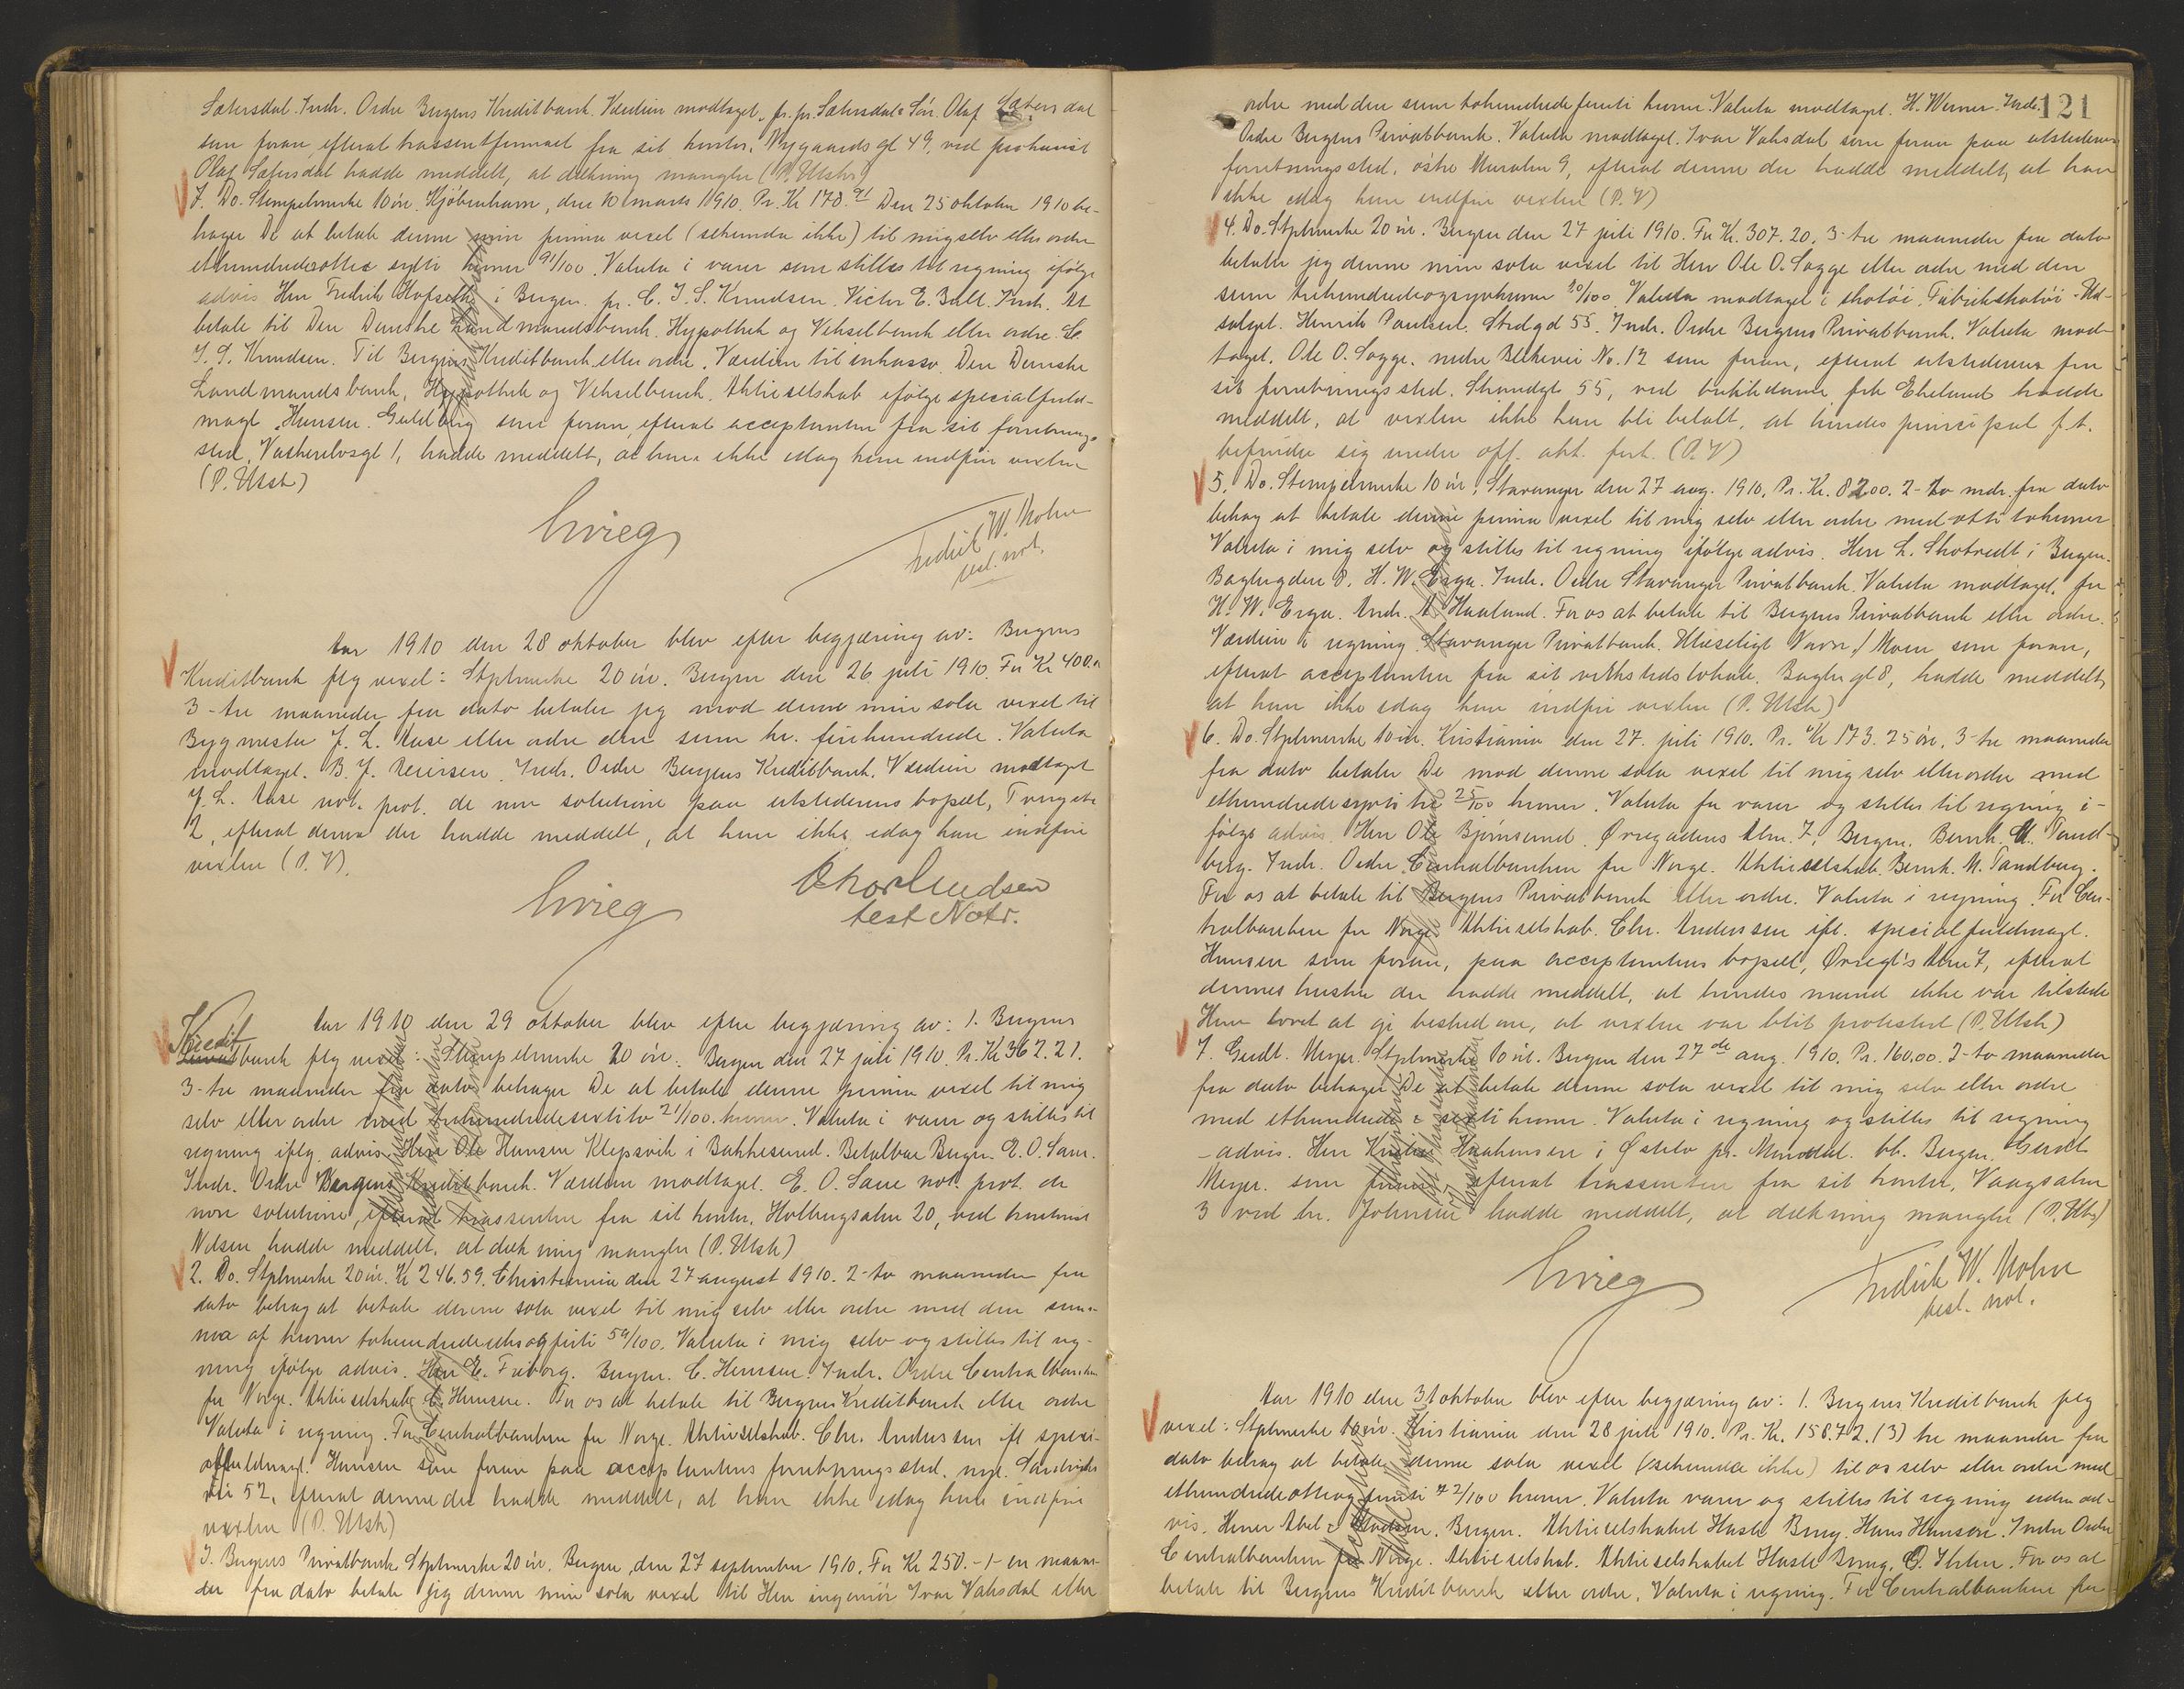 Sætersdal. Indr. Ordre Bergens Kreditbank. Værdien modtaget. pr. pr. Sætersdal & Søn. Olaf Sætersdal
som foran efterat trassentfirmaet fra sit kontor, Nygaardsgt 49, ved prokurist
Olaf Sætersdal hadde meddelt, at dækning mangler (P. Utsh)
7. Do. Stempelmerke 10 øre. Kjøbenhavn, den 10 marts 1910. Pr. Kr 178.91 Den 25 oktober 1910 be-
hager De at betale denne min prima vexel (sekunda ikke) til mig selv eller ordre
ethundredeotte sytti kroner 91/100. Valuta i varer som stilles til regning ifølge
advis Herr Fredrik Hofseth i Bergen. pr. C. J. S. Knudsen. Victor E. Indr. At
betale til Den Danske Landmandsbank. Hypothek og Vekselbank eller ordre. C.
J. S. Knudsen. Til Bergens Kreditbank eller ordre. Værdien til inkasso. Den Danske
Landmandsbank, Hypothek og Vekselbank. Aktieselskab ifølge specialfuld-
magt Hansen. Guldberg som foran, efterat acceptanten fra sit forretnings
sted, Vaskerelvsgt 1, hadde meddelt, at han ikke idag kan indfri vexlen
(P. Utsh)
Grieg
Fredrik W. Mohn
besk. not.
Aar 1910 den 28 oktober blev efter begjæring av: Bergens
Kreditbank flg vexel: Stplmerke 20 øre. Bergen den 26 juli 1910. For Kr 400.
3-tre maaneder fra dato betaler jeg mod denne min sola vexel til
Bygmester J. L. Aase eller ordre den sum kr. firehundrede. Valuta
modtaget. B. J. Reiersen. Indr. Ordre Bergens Kreditbank. Værdien modtaget
J. L. Aase not. prot. de non solutione paa utstederens bopæl, Torvgate
2, efterat denne der hadde meddelt, at han ikke idag kan indfri
vexlen (P. V).
Grieg
Knudsen
test Notr.
Aar 1910 den 29 oktober blev efter begjæring av: 1. Bergens
Kredit
Privatbank flg vexel: Stempelmerke 20 øre. Bergen den 27 juli 1910. Pr. Kr 362.21.
3-tre maaneder fra dato behager De at betale denne prima vexel til mig
selv eller ordre med trehundredesextito 21/100. kroner. Valuta i varer og stilles til
regning iflg. advis. Herr Ole Hansen Klepsvik i Bakkesund. Betalbar Bergen. E. O. Sane.
Indr. Ordre Bergens Kreditbank. Værdien modtaget. E. O. Sane not. prot. de
non solutione, efterat trassenten fra sit kontor, Holbergsalm 20, ved kontorist
Nilsen hadde meddelt, at dækning mangler (P. Utsh)
2. Do. Stplmerke 20 øre. Kr 246.59. Christiania den 27 august 1910. 2-to maaneder fra
dato behag at betale denne sola vexel til mig selv eller ordre med den sum-
ma af kroner tohundredeseksogfirti 59/100. Valuta i mig selv og stilles til reg-
ning ifølge advis. Herr E. Friborg. Bergen. C. Hansen. Indr. Ordre Centralbanken
for Norge. Aktieselskab. C. Hansen. For os at betale til Bergens Kreditbank eller ordre
Valuta i regning. For Centralbanken for Norge. Aktieselskab. Chr. Andersen ifl. speci-
alfuldmagt. Hansen som foran paa acceptantens forretningssted, nye Sandviks
vei 52, efterat denne der hadde meddelt, at han ikke idag kan indfri
vexlen (P. Utsh)
3. Bergens Privatbank. Stplmerke 20 øre. Bergen, den 27 september 1910. For Kr 250.-1-en maane-
der fra dato betaler jeg denne min sola vexel til Herr ingeniør Ivar Vaksdal eller
121
ordre med den sum tohundredefemti kroner. Valuta modtaget. H. Werner. Indr.
Ordre Bergens Privatbank. Valuta modtaget. Ivar Vaksdal som foran paa utstederens
forretningssted, østre Muralm 9, efterat denne der hadde meddelt, at han
ikke idag kan indfri vexlen (P. V)
4. Do. Stplmerke 20 øre. Bergen den 27 juli 1910. For Kr. 307.20. 3-tre maaneder fra dato
betaler jeg denne min sola vexel til Herr Ole O. Sagge eller ordre med den
sum trehundredeogsyvkroner 20/100 Valuta modtaget i skotøi. Fabrikskotøi-Ud-
salget. Henrik Paulsen. Strdgd 55. Indr. Ordre Bergens Privatbank. Valuta mod-
taget. Ole O. Sagge. nedre Blekevei No. 12 som foran, efterat utstederen fra
sit forretningssted. Strandgt 55, ved butikdame frk Ekelund hadde
meddelt, at vexlen ikke kan bli betalt, at hendes principal f. t.
befinder sig under off. akk. forh. (P. V)
5. Do. Stempelmerke 10 øre. Stavanger den 27 aug. 1910. Pr. Kr. 82.00. 2-to mdr. fra dato
behag at betale denne prima vexel til mig selv eller ordre med otti tokroner
Valuta i mig selv og stilles til regning ifølge advis. Herr L. Skotvedt i Bergen.
Baglergden 8. H. W. Erga. Indr. Ordre Stavanger Privatbank. Valuta modtaget. for
H. W. Erga. Andr. A Haaland. For os at betale til Bergens Privatbank eller ordre.
Værdien i regning. Stavanger Privatbank. Utlæseligt Navn / Moen som foran,
efterat acceptanten fra sit verkstedslokale, Baglergt 8, hadde meddelt,
at han ikke idag kan indfri vexlen (P. Utsh)
6. Do. Stplmerke 10 øre. Kristiania den 27. juli 1910. Pr. Kr 173.25 øre. 3-tre maaneder
fra dato betaler De mod denne sola vexel til mig selv eller ordre med
ethundredesyvti tre 25/100 kroner. Valuta for varer og stilles til regning i-
følge advis. Herr Ole Bjørnsund. Ørregadens Alm. 7, Bergen. Bernh. M. Tand-
berg. Indr. Ordre Centralbanken for Norge. Aktieselskab. Bernh. M. Tandberg.
For os at betale til Bergens Privatbank eller ordre. Valuta i regning. For Cen-
tralbanken for Norge. Aktieselskab. Chr. Andersen ifl. specialfuldmagt.
Hansen som foran, paa acceptantens bopæl, Ørregt's Alm 7, efterat
dennes hustru der hadde meddelt, at hendes mand ikke var tilstede
Hun lovet at gi besked om, at vexlen var blit protestert (P. Utsh)
7. Gerdt. Meyer. Stplmerke 10 øre. Bergen den 27de aug. 1910. Pr. 160.00. 2-to maaneder
fra dato behager De at betale denne sola vexel til mig selv eller ordre
med ethundrede & sexti kroner. Valuta i regning og stilles til regning
-advis. Herr Kristian Haakensen i Østebø pr. Masfjord. bb. Bergen. Gerdt
Meyer. som foran efterat trassenten fra sit kontor, Vaagsalm
3 ved hr. Johnsen hadde meddelt, at dækning mangler (P. Utsh)
Grieg
Fredrik W. Mohn
besk. not.
Aar 1910 den 31 oktober blev efter begjæring av: 1. Bergens Kreditbank flg
vexel: Stplmerke 10 øre. Kristiania den 28 juli 1910. Pr. Kr. 158.72. (3) tre maaneder fra
dato behag at betale denne sola vexel (sekunda ikke) til os selv eller ordre med
ethundredeotteogfemti 72/100 kroner. Valuta varer og stilles til regning uden ad-
vis. Herrer Abel & Knudsen, Bergen. Aktieselskabet Hasle Brug. Hans Hansen. Indr. Ordre
Centralbanken for Norge. Aktieselskab. Aktieselskabet Hasle Brug. For os at
betale til Bergens Kreditbank eller ordre. Valuta i regning. For Centralbanken for